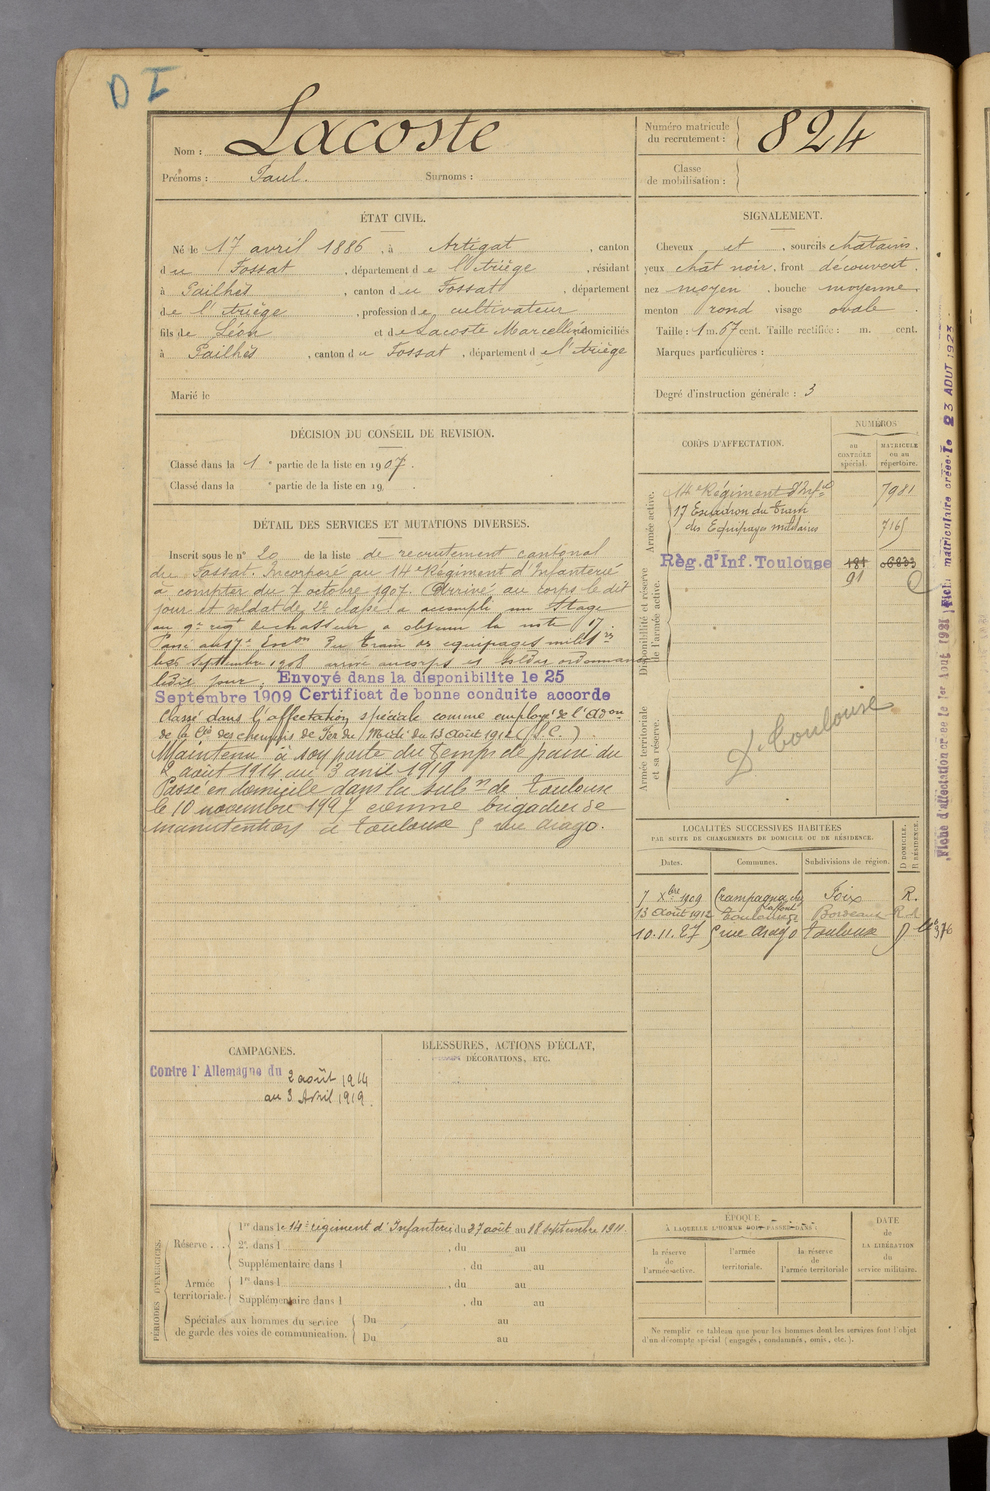 D I
Nom : Lacoste
Prénoms : Paul. Surnoms :
Numéro matricule
du recrutement : 824
Classe
de mobilisation :
ÉTAT CIVIL.
Né le 17 avril 1886, à Artigat, canton
du Fossat, département de l'Ariège, résidant
à Pailhès, canton du Fossat, département
de l'Ariège, profession de cultivateur
fils de Léon et de Lacoste Marcelline domiciliés
à Pailhès, canton du Fossat, département de l'Ariège
Marié le
SIGNALEMENT.
Cheveux et , sourcils châtains.
yeux chât noir, front découvert.
nez moyen, bouche moyenne
menton rond visage ovale.
Taille : 1 m. 67 cent. Taille rectifiée : m. cent.
Marques particulières :
Degré d'instruction générale : 3
DÉCISION DU CONSEIL DE REVISION.
Classé dans la 1e partie de la liste en 1907.
Classé dans la e partie de la liste en 19 .
DÉTAIL DES SERVICES ET MUTATIONS DIVERSES.
Inscrit sous le n° 20 de la liste de recrutement cantonal
du Fossat. Incorporé au 14e Régiment d'Infanterie
à compter du 7 octobre 1907. Arrivé au corps le dit
jour et soldat de 2e classe. a accompli un Stage
au 9e regt de chasseur a obtenu la note 17.
Passé au 17e Escon du Train des equipages milit res
le 25 Septembre 1908 arrivé au corps et Soldat ordonnance
le dit jour. Envoyé dans la disponibilite le 25
Septembre 1909 Certificat de bonne conduite accorde
Classé dans l'affectation spéciale comme employé de l'Adon
de la Cie des chemins de Fer du Midi du 13 Août 1912 (S.C.)
Maintenu à son poste du Temps de paix du
2 août 1914 au 3 avril 1919
Passé en domicile dans la subon de Toulouse
le 10 novembre 1927 comme brigadier de
manutention à Toulouse 5 rue Arago.
CORPS D'AFFECTATION.
NUMÉROS
au
CONTRÔLE
spécial.
MATRICULE
ou au
répertoire.
Armée active.
14e Régiment d'Infie 7981
17 Escadron du Train
des Equipages militaires 7165
Disponibilité et réserve
de l'armée active.
Rég. d'Inf. Toulouse 181 06833
91
Armée territoriale
et sa réserve.
D. Toulouse
LOCALITÉS SUCCESSIVES HABITÉES
PAR SUITE DE CHANGEMENTS DE DOMICILE OU DE RÉSIDENCE.
Dates. Communes. Subdivisions de région. D DOMICILE. R RÉSIDENCE.
7 Xbre 1909 Campagna Foix R.
13 Août 1912 Toulouse Bordeaux R
10.11.27 5 rue Arago Toulouse D
CAMPAGNES.
Contre l'Allemagne du 2 août 1914
au 3 Avril 1919.
BLESSURES, ACTIONS D'ÉCLAT,
DÉCORATIONS, ETC.
PÉRIODES D'EXERCICES.
Réserve . . .
1re dans le 14e régiment d'Infanterie du 27 août au 18 septembre 1911.
2e dans l , du au
Supplémentaire dans l , du au
Armée
territoriale.
1re dans l , du au
Supplémentaire dans l , du au
Spéciales aux hommes du service
de garde des voies de communication.
Du au
Du au
ÉPOQUE
À LAQUELLE L'HOMME DOIT PASSER DANS :
la réserve
de
l'armée active.
l'armée
territoriale.
la réserve
de
l'armée territoriale
DATE
de
LA LIBÉRATION
du
service militaire.
Ne remplir ce tableau que pour les hommes dont les services font l'objet
d'un décompte spécial (engagés, condamnés, omis, etc.).
Fiche d'affectation créée le 1er Août 1921 Fich matriculaire créée le 23 AOUT 1923